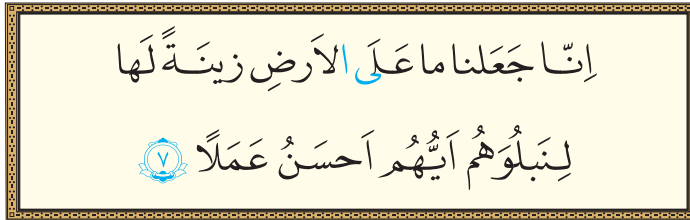 اِنّا جَعَلنا ما عَلَی الاَرضِ زینَةً لَها
لِنَبلُوَهُم اَیُّهُم اَحسَنُ عَمَلًا ۷